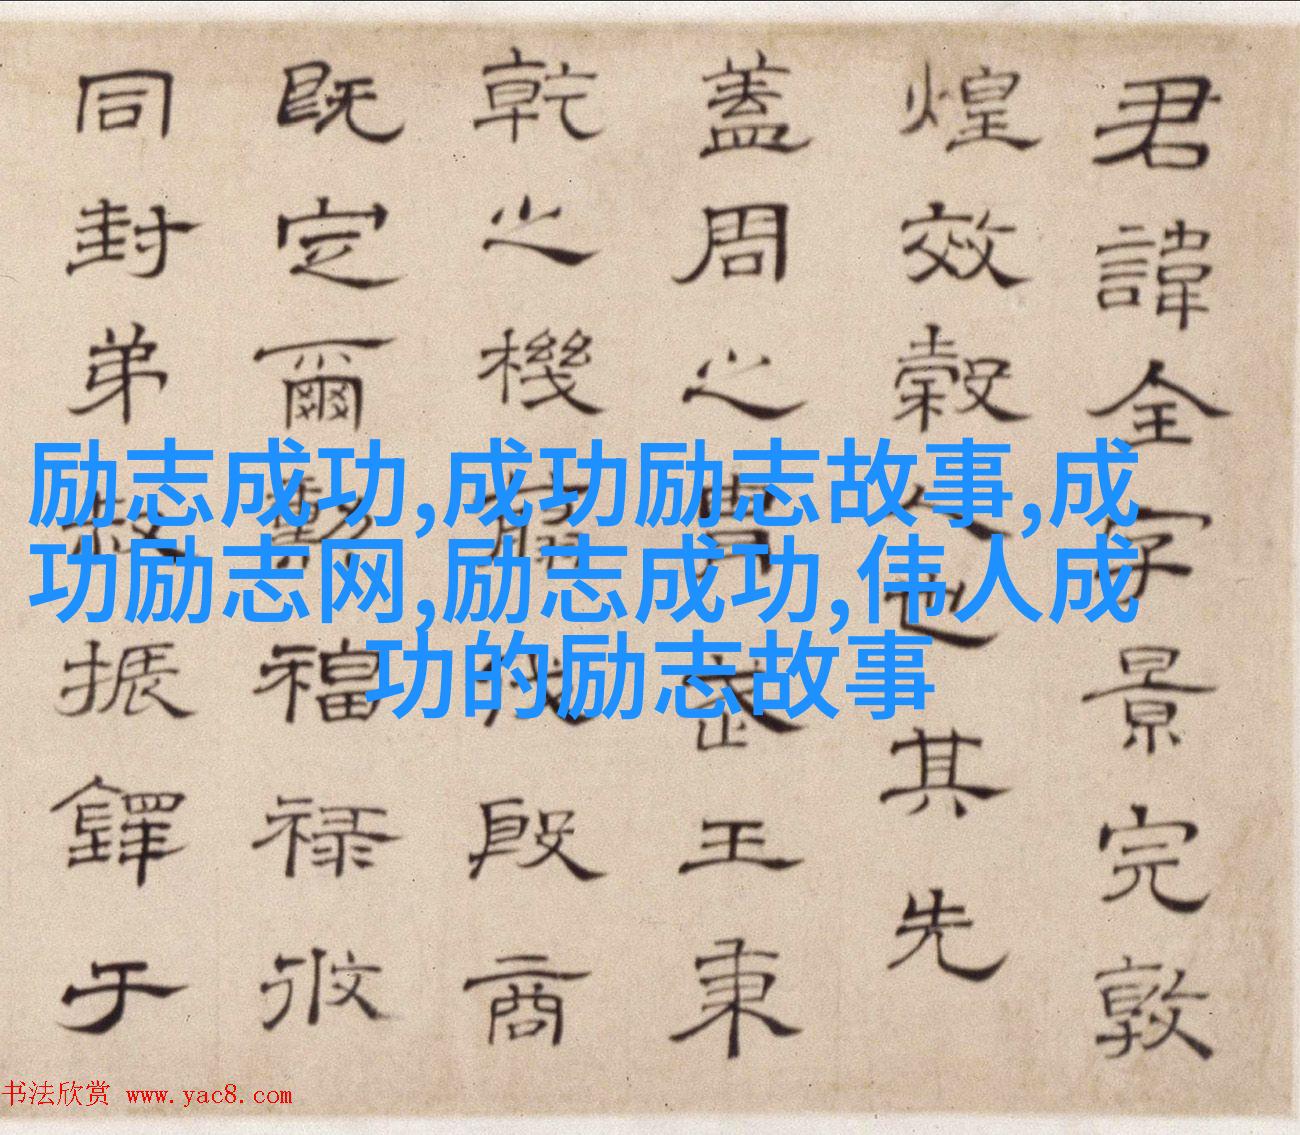 君諱全字景完敦
煌效穀人也其先
蓋周之胄武王秉
乾之機翦伐殷商
既定爾勳福禄攸
同封弟叔振鐸于
励志成功,成功励志故事,成
功励志网,励志成功,伟人成
功的励志故事
书法欣赏 www.yac8.com